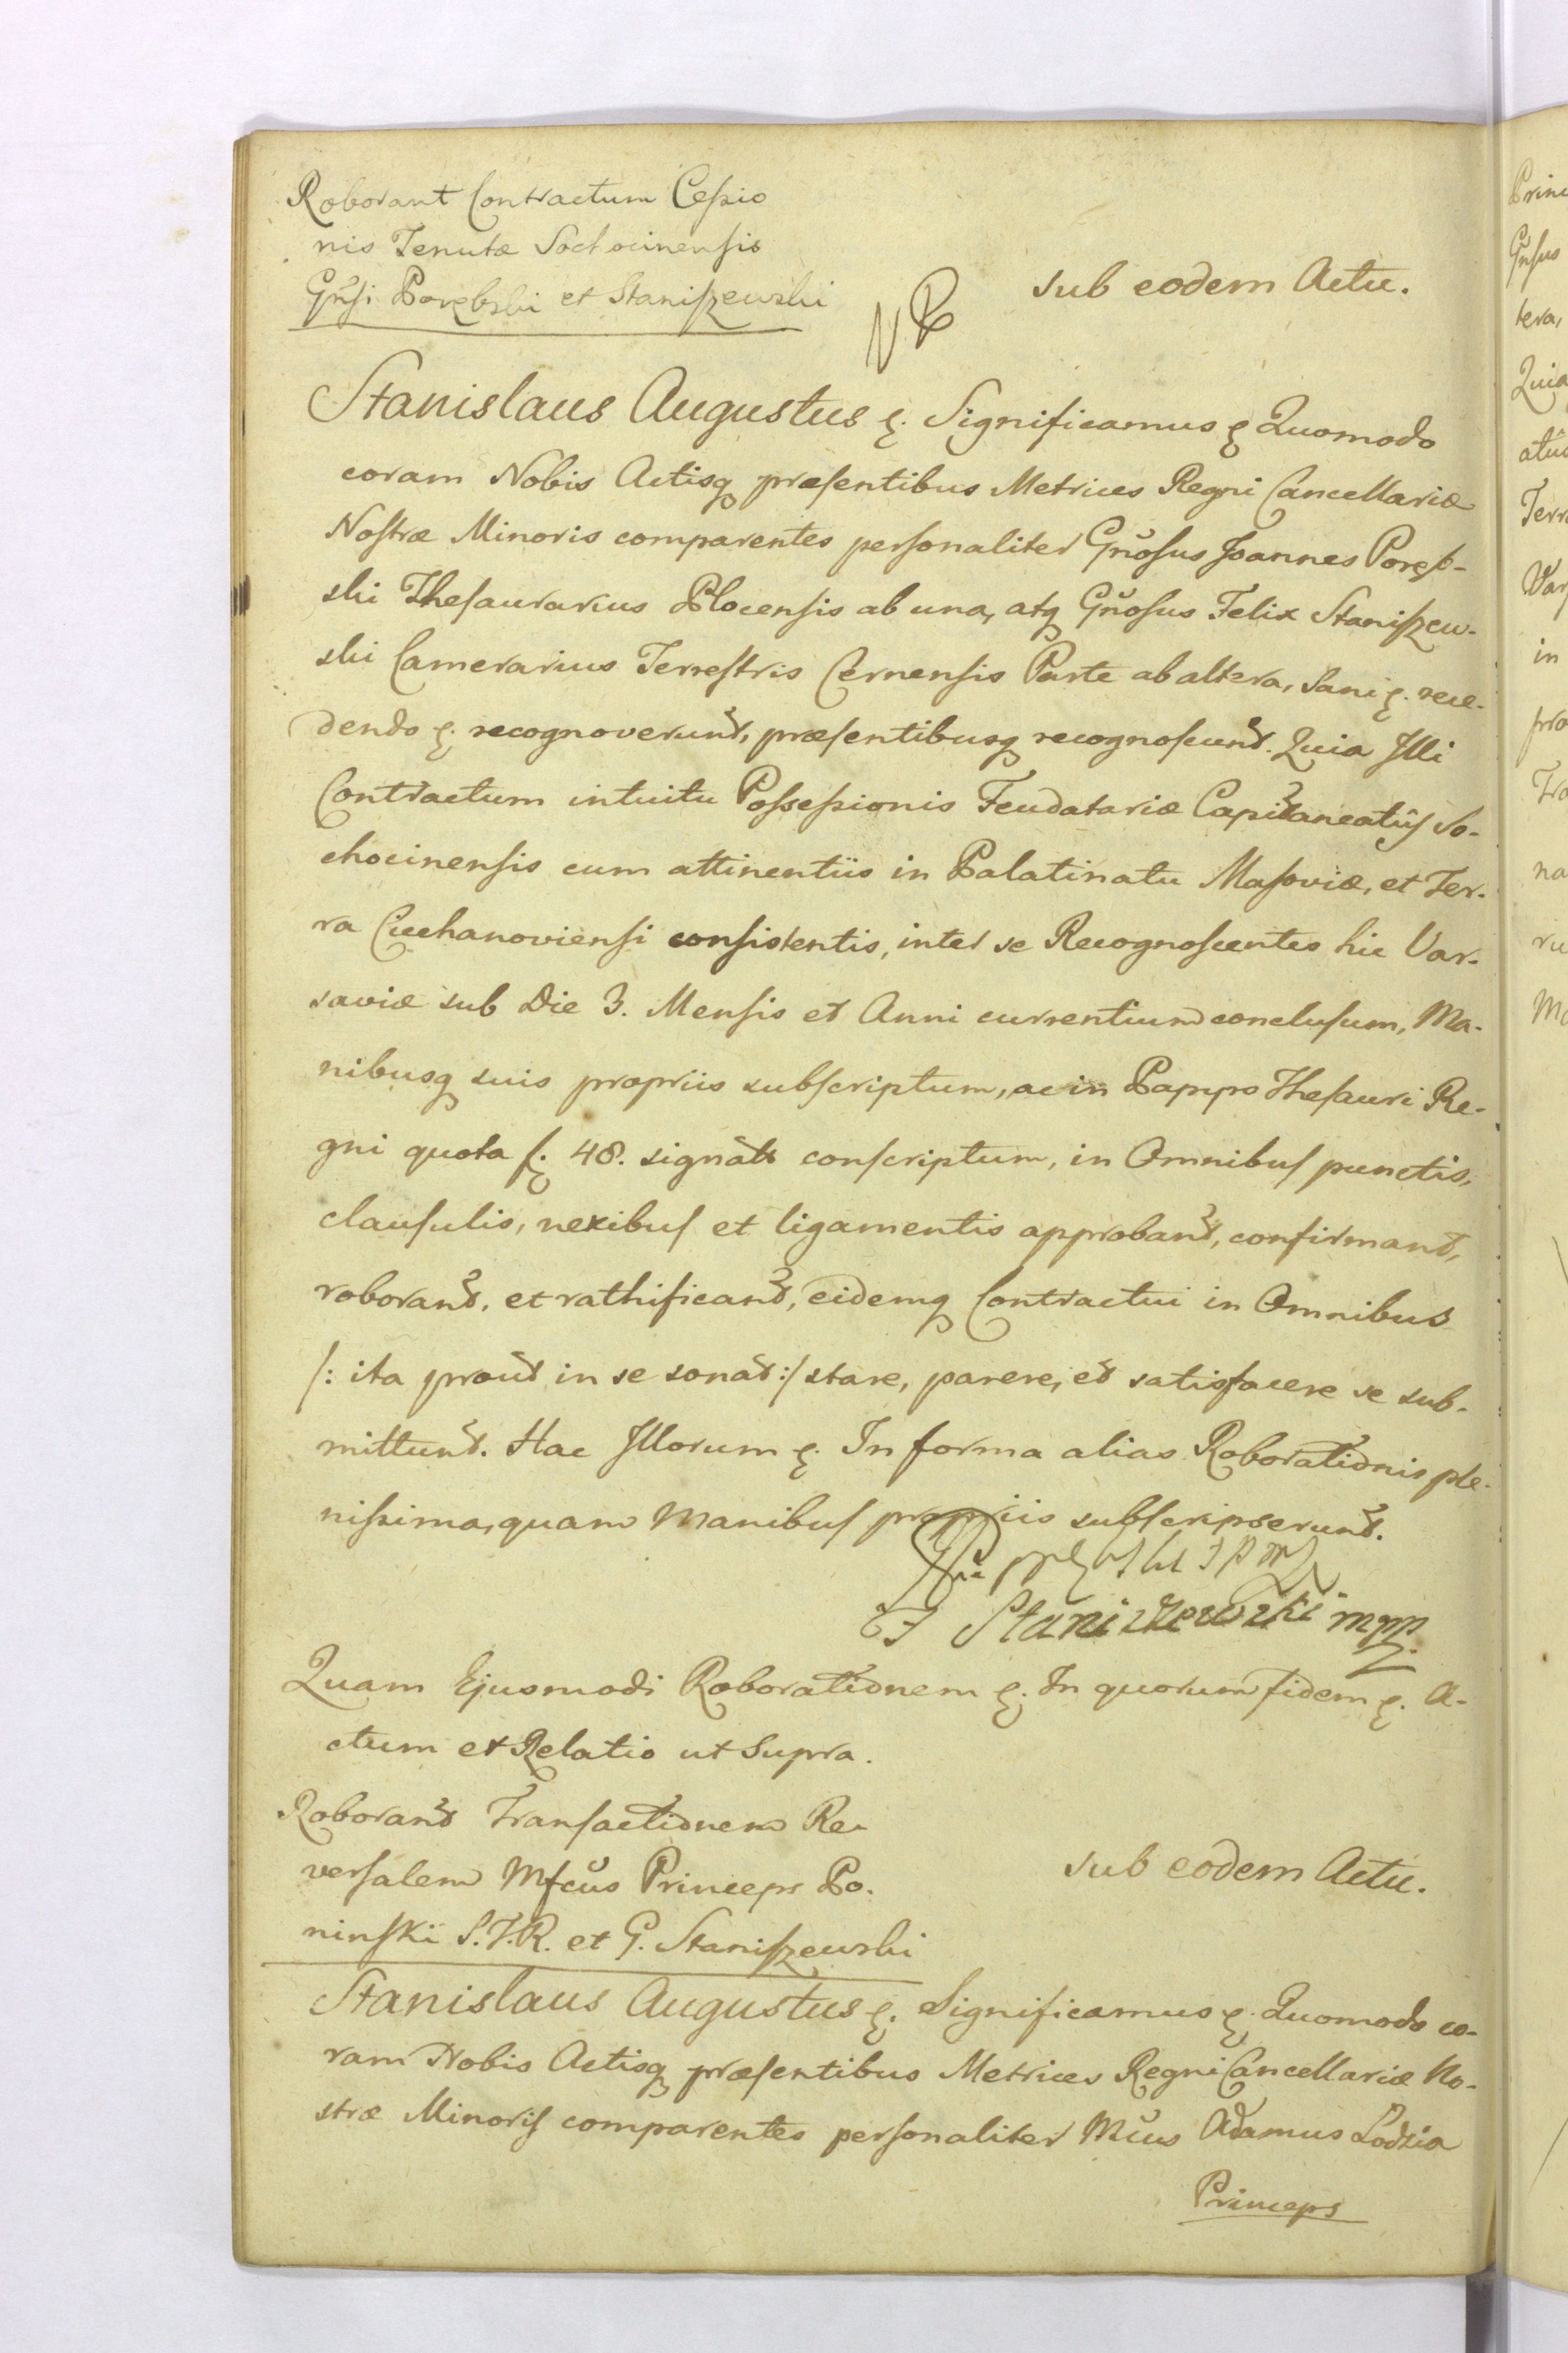 Roborant Contractum Cessio
nis Tenutæ Sochocinensis
Gnsi Porębski et Staniszewski
NB
sub eodem Actu.
Stanislaus Augustus &. Significamus & Quomodo
coram Nobis Actisq præsentibus Metrices Regni Cancellariæ
Nostræ Minoris comparentes personaliter Gnosus Joannes Poręb-
ski Thesaurarius Plocensis ab una, atq Gnosus Felix Staniszew-
ski Camerarius Terrestris Cernensis Parte ab altera, Sani &. rece-
dendo &. recognoverunt, præsentibusq recognoscunt. Quia Illi
Contractum intuitu Possessionis Feudatariæ Capitaneatûs So-
chocinensis cum attinentiis in Palatinatu Masoviæ, et Ter-
ra Ciechanoviensi consistentis, inter se Recognoscentes hic Var-
saviæ sub Die 3. Mensis et Anni currentium conclusum, Ma-
nibusq suis propriis subscriptum, ac in Pappo Thesauri Re-
gni quota f. 48. signato conscriptum, in Omnibus punctis,
clausulis, nexibus et ligamentis approbant, confirmant,
roborant, et rathificant, eidemq Contractui in Omnibus
/: ita prout in se sonat :/ stare, parere, et satisfacere se sub-
mittunt. Hac Illorum &. In forma alias Roborationis ple-
nissima, quam Manibus propriis subscripserunt.
F Staniszewski mpp.
Quam Ejusmodi Roborationem &. In quorum fidem &. A-
ctum et Relatio ut Supra.
Roborant Transactionem Re-
versalem Mfcus Princeps Po-
ninski S.T.R. et G. Staniszewski
sub eodem Actu.
Stanislaus Augustus &. Significamus &. Quomodo co-
ram Nobis Actisq præsentibus Metrices Regni Cancellariæ No-
stræ Minoris comparentes personaliter Mcus Adamus Lodzia
Princeps